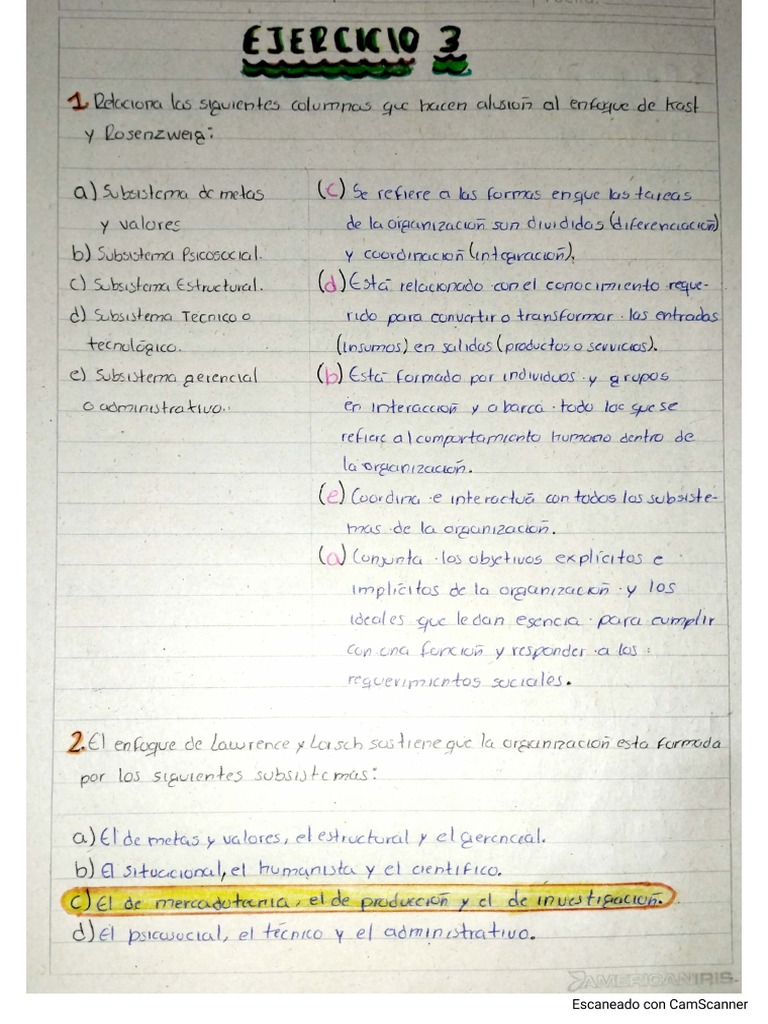 EJERCICIO 3
1. Relaciona las siguientes columnas que hacen alusión al enfoque de Kast
y Rosenzweig:
a) Subsistema de metas
y valores
b) Subsistema Psicosocial.
c) Subsistema Estructural.
d) Subsistema Tecnico o
tecnológico.
e) Subsistema gerencial
o administrativo.
(c) Se refiere a las formas en que las tareas
de la organización son divididas (diferenciación)
y coordinación (integración).
(d) Está relacionado con el conocimiento reque-
rido para convertir o transformar las entradas
(insumos) en salidas (productos o servicios).
(b) Está formado por individuos y grupos
en interacción y abarca todo lo que se
refiere al comportamiento humano dentro de
la organización.
(e) Coordina e interactúa con todos los subsiste-
mas de la organización.
(a) Conjunta los objetivos explícitos e
implícitos de la organización y los
ideales que le dan esencia para cumplir
con una función y responder a los
requerimientos sociales.
2. El enfoque de Lawrence y Lorsch sostiene que la organización esta formada
por los siguientes subsistemas:
a) El de metas y valores, el estructural y el gerencial.
b) El situacional, el humanista y el científico.
c) El de mercadotecnia, el de producción y el de investigación.
d) El psicosocial, el técnico y el administrativo.
AMERICAN IRIS
Escaneado con CamScanner